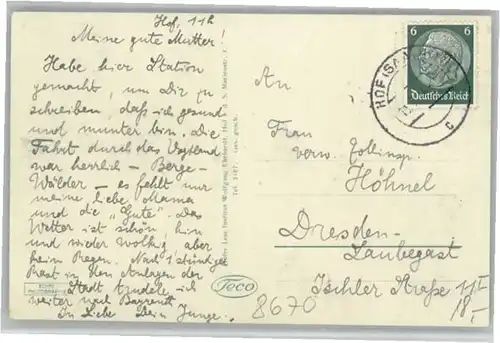 Hof, 11h
Meine gute Mutter!
Habe hier Station
gemacht, um Dir zu
schreiben, daß ich gesund
und munter bin. Die
Fahrt durch das Vogtland
war herrlich – Berge –
Wälder – es fehlt nur
meine liebe Mama
und die "Gute". Das
Wetter ist schön hin
und wieder wolkig aber
kein Regen. Nach 1 stündger
Rast in den Anlagen der
Stadt ich
weiter nach Bayreuth
In Liebe Dein Junge.
Teco
6 6
Deutsches Reich
HOF (SAALE)
c
An
Frau
verw. Zollinsp.
Höhnel
Dresden-
Laubegast
Ischler Straße 11 I
8670
18,-